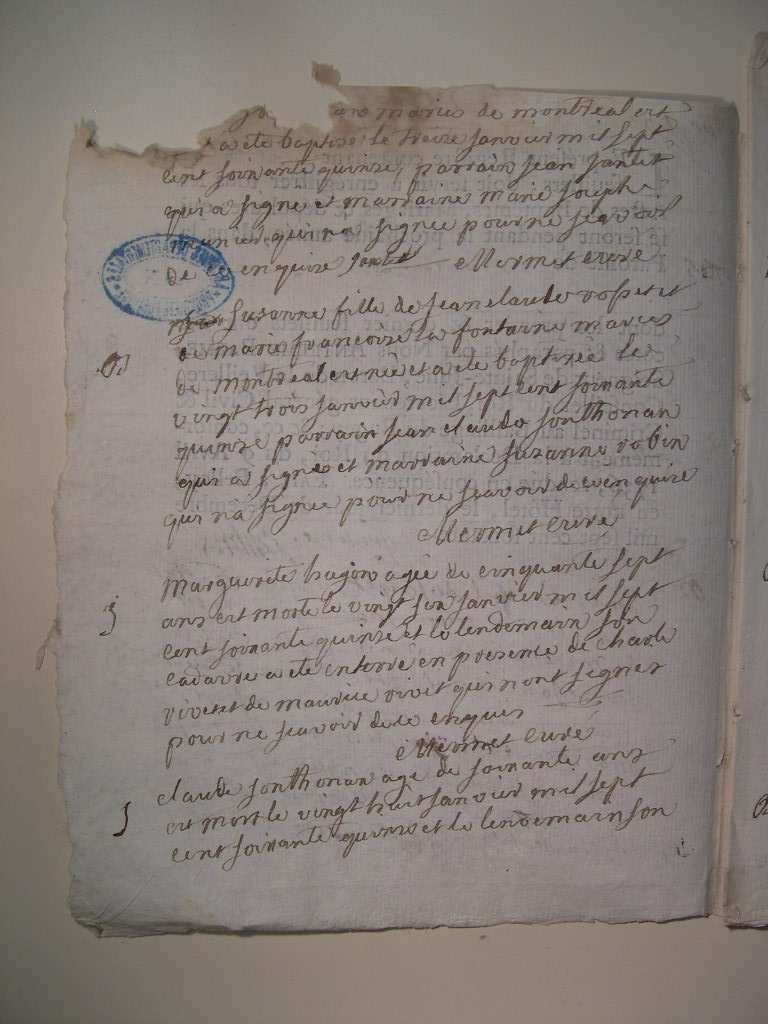 maries de montreal est
a ete baptisé le treize janvier mil sept
cent soixante quinze, parrain jean jantet
qui a signe et marraine marie joseph
qui na signée pour ne sçavoir
de ce enquise jantet Mermet curé
Suzanne fille de jean claude rosset et
de marie francoise la fontaine maries
de montreal est née et a ete baptisée le
vingt trois janvier mil sept cent soixante
quinze parrain jean claude sonthonax
qui a signe et marraine suzanne robin
qui na signée pour ne sçavoir de ce enquise
Mermet curé
Marguerite agée de cinquante sept
ans est morte le vingt six janvier mil sept
cent soixante quinze et le lendemain son
cadavre a ete enterré en presence de charle
vivet et de maurice vivet qui nont signer
pour ne sçavoir de ce enquis
Mermet curé
claude sonthonax agé de soixante ans
est mort le vingt huit janvier mil sept
cent soixante quinze et le lendemain son